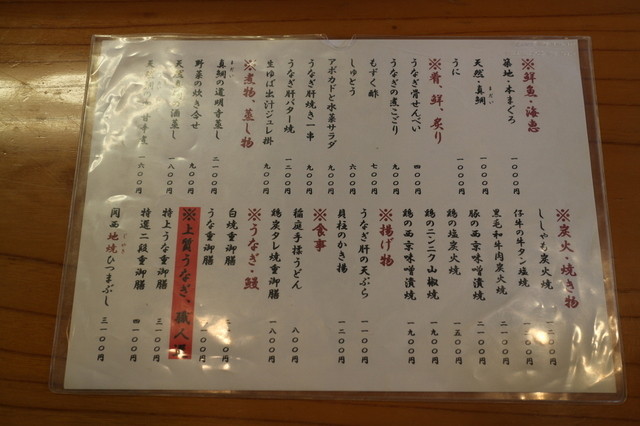 ※鮮魚・海恵
築地・本まぐろ 一〇〇〇円
天然・真鯛 一〇〇〇円
まだい
うに 一〇〇〇円
※肴、鮮、炙り
うなぎ骨せんべい 四〇〇円
うなぎの煮こごり 九〇〇円
もずく酢 七〇〇円
しゅとう 六〇〇円
アボカドと水菜サラダ 九〇〇円
うなぎ肝焼き一串 九〇〇円
うなぎ肝バター焼 一二〇〇円
生ゆば出汁ジュレ掛 九〇〇円
※煮物、蒸し物
真鯛の道明寺蒸し 二一〇〇円
まだい
野菜の炊き合せ
酒蒸し 一八〇〇円
甘辛煮 一六〇〇円
※炭火・焼き物
ししゃも炭火焼 一二〇〇円
仔牛の牛タン塩焼
黒毛和牛肉炭火焼 二一〇〇円
豚の西京味噌漬焼 二一〇〇円
鶏の塩炭火焼 一五〇〇円
鶏のニンニク山椒焼 一九〇〇円
鶏の西京味噌漬焼 一九〇〇円
※揚げ物
うなぎ肝の天ぷら 一一〇〇円
貝柱のかき揚 一二〇〇円
※食事
稲庭手揉うどん 八〇〇円
鶏炭タレ焼重御膳 一八〇〇円
※うなぎ・鰻
白焼重御膳
うな重御膳
※上質うなぎ、職人選
特上うな重御膳 三一〇〇円
特選二段重御膳 四一〇〇円
関西地焼ひつまぶし 三一〇〇円